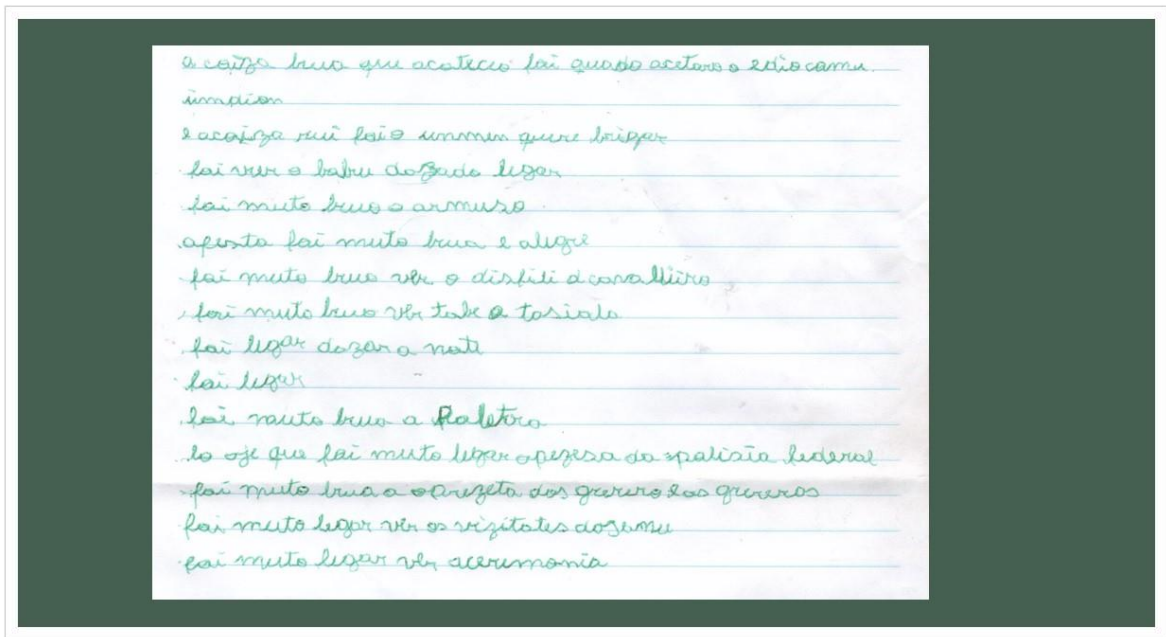 a coiza brua que acoteceo foi quado acetaro o
umdion
e acoiza rui foi o unmen quere brigar
foi ver o babu dozado legar
foi muto bruo o armuso
afesta foi muto brua e alegre
foi muto bruo ver o disfili d cavalliiro
foi muto bruo ver tabe o tosialo
foi legar dozar a noti
foi legar
foi muto brua a Paletra
lo oje que foi muto legar apezesa da spalisia federal
foi muto brua a aprezeta dos greurero e as greueros
foi muto legar ver os vizitates dozamu
foi muto legar ver acerimonia